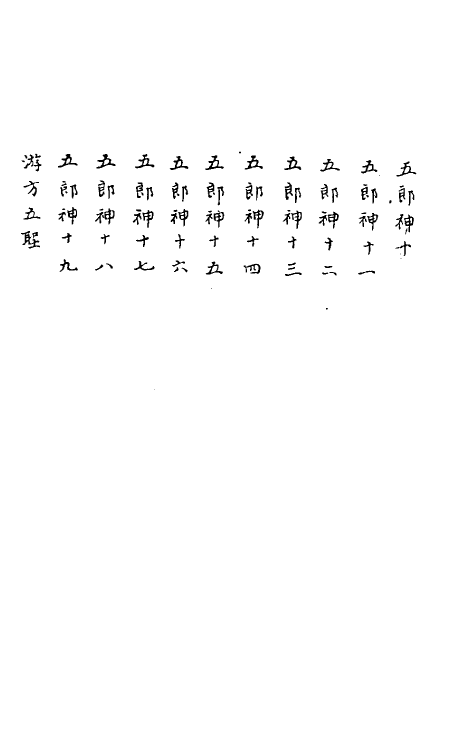 五郎神十
五郎神十一
五郎神十二
五郎神十三
五郎神十四
五郎神十五
五郎神十六
五郎神十七
五郎神十八
五郎神十九
游方五聖